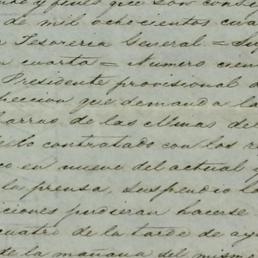 y pues que son
de mil ochocientos cua
Tesoreria General = Su
cuarta = Numero cien
Presidente provisional d
peccion que demanda la
barras de las Minas de
contratado con los
co en nueve del actual y
la prensa, suspendió la
iciones pudieran hacerse
cuatro de la tarde de ay
de la mañana del mismo